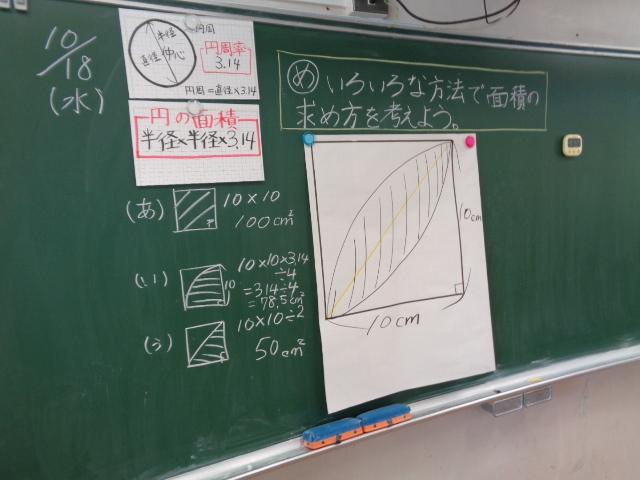 10/18
(水)
円周
半径
直径
中心
円周率
3.14
円周=直径×3.14
円の面積
半径×半径×3.14
め いろいろな方法で面積の
求め方を考えよう。
(あ)
10×10
100cm²
(い)
10
10×10×3.14
÷4
=314÷4
=78.5cm²
(う)
10×10÷2
50cm²
10cm
10cm